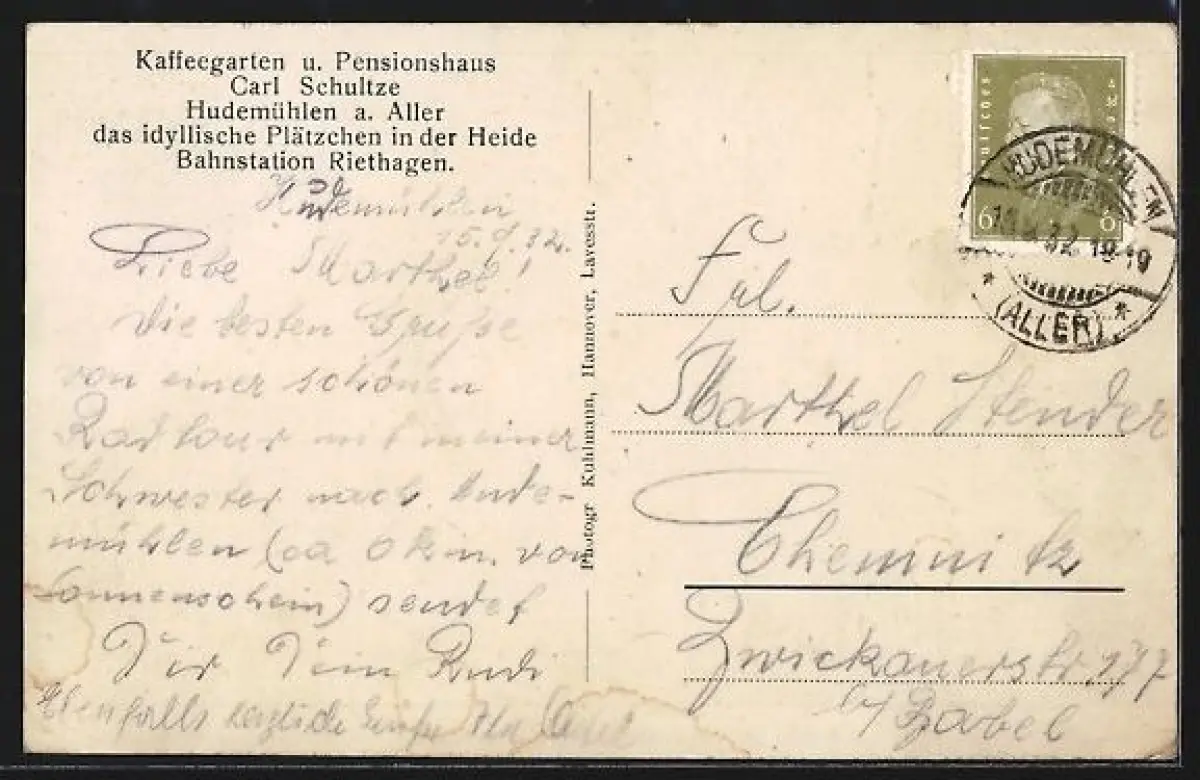 Kaffeegarten u. Pensionshaus
Carl Schultze
Hudemühlen a. Aller
das idyllische Plätzchen in der Heide
Bahnstation Riethagen.
Hudemühlen
Liebe Marthel!
Die besten Grüße
von einer schönen
Radtour mit meiner
Schwester nach Hude-
mühlen (ca km. von
Sonnenschein) sendet
Dir Dein Rudi
Ebenfalls
Photogr Kuhlmann, Hannover, Lavesstr.
Deutsches
6 6
HUDEMÜHLEN
32 18-19
* (ALLER) *
Frl.
Marthel Stender
Chemnitz
Zwickauerstr 177
b/ Zabel